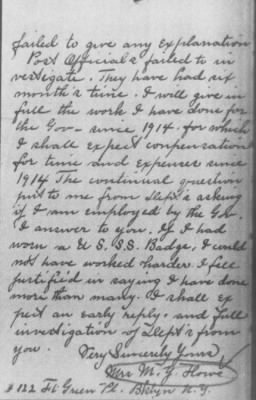 failed to give any explanation
Post Officials failed to in
vestegate. They have had six
month's time. I will give in
full the work I have done for
the Gov- since 1914. for which
I shall expect conpensation
for time and expenses since
1914 The continual question
put to me from Dept's asking
if I am employed by the Gov.
I answer to you. If I had
worn a U.S.S.S. Badge, I could
not have worked harder. I feel
justified in saying I have done
more than many. I shall ex
pect an early reply. and full
investigation of Dept's from
you.
Very Sincerely Yours
Mrs M. Y. Howe
# 122 Ft Green Pl. Bklyn N.Y.